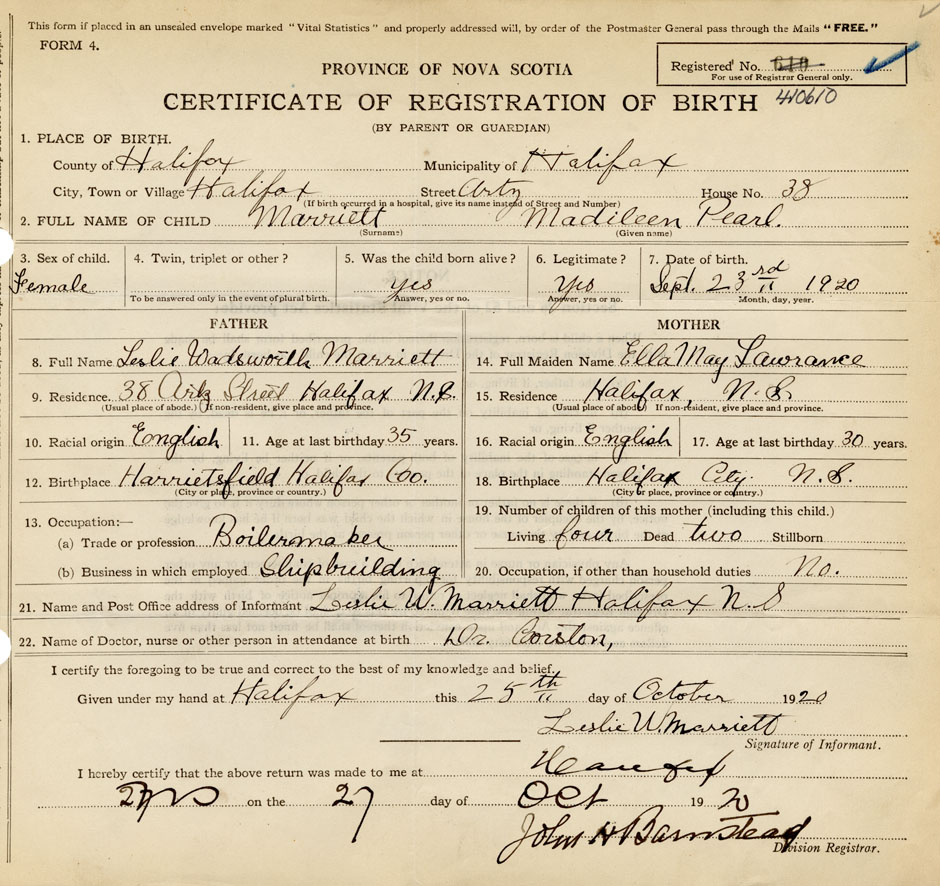 This form if placed in an unsealed envelope marked "Vital Statistics" and properly addressed will, by order of the Postmaster General pass through the Mails "FREE."
FORM 4.
Registered No. 610
For use of Registrar General only.
PROVINCE OF NOVA SCOTIA
CERTIFICATE OF REGISTRATION OF BIRTH 410610
(BY PARENT OR GUARDIAN)
1. PLACE OF BIRTH.
County of Halifax Municipality of Halifax
City, Town or Village Halifax Street Artz House No. 38
(If birth occurred in a hospital, give its name instead of Street and Number)
2. FULL NAME OF CHILD Marriett Madileen Pearl.
(Surname) (Given name)
3. Sex of child. 4. Twin, triplet or other? 5. Was the child born alive? 6. Legitimate? 7. Date of birth.
Female yes Yes Sept. 23rd 1920
To be answered only in the event of plural birth. Answer, yes or no. Answer, yes or no. Month, day, year.
FATHER MOTHER
8. Full Name Leslie Wadsworth Marriett 14. Full Maiden Name Ella May Lawrance
9. Residence. 38 Artz Street Halifax N.S. 15. Residence Halifax, N.S.
(Usual place of abode.) If non-resident, give place and province. (Usual place of abode) If non-resident, give place and province.
10. Racial origin English 11. Age at last birthday 35 years. 16. Racial origin English 17. Age at last birthday 30 years.
12. Birthplace Harrietsfield Halifax Coo. 18. Birthplace Halifax City. N.S.
(City or place, province or country.) (City or place, province or country.)
13. Occupation:— 19. Number of children of this mother (including this child.)
(a) Trade or profession Boilermaker Living four Dead two Stillborn
(b) Business in which employed Shipbuilding 20. Occupation, if other than household duties No.
21. Name and Post Office address of Informant Leslie W. Marriett Halifax N.S
22. Name of Doctor, nurse or other person in attendance at birth Dr. Corston,
I certify the foregoing to be true and correct to the best of my knowledge and belief.
Given under my hand at Halifax this 25th day of October 1920
Leslie W. Marriett
Signature of Informant.
I hereby certify that the above return was made to me at Halifax
on the 27 day of Oct 1920
John H Barnstead
Division Registrar.